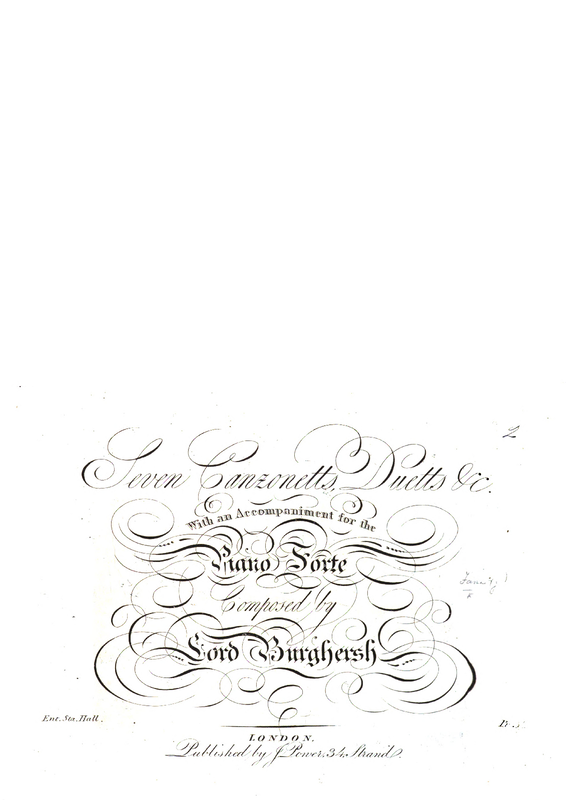 2
Seven Canzonetts, Duetts &c.
With an Accompaniment for the
Piano Forte
Composed by
Lord Burghersh
Ent. Sta. Hall. Pr. 5
LONDON.
Published by J. Power, 34, Strand.